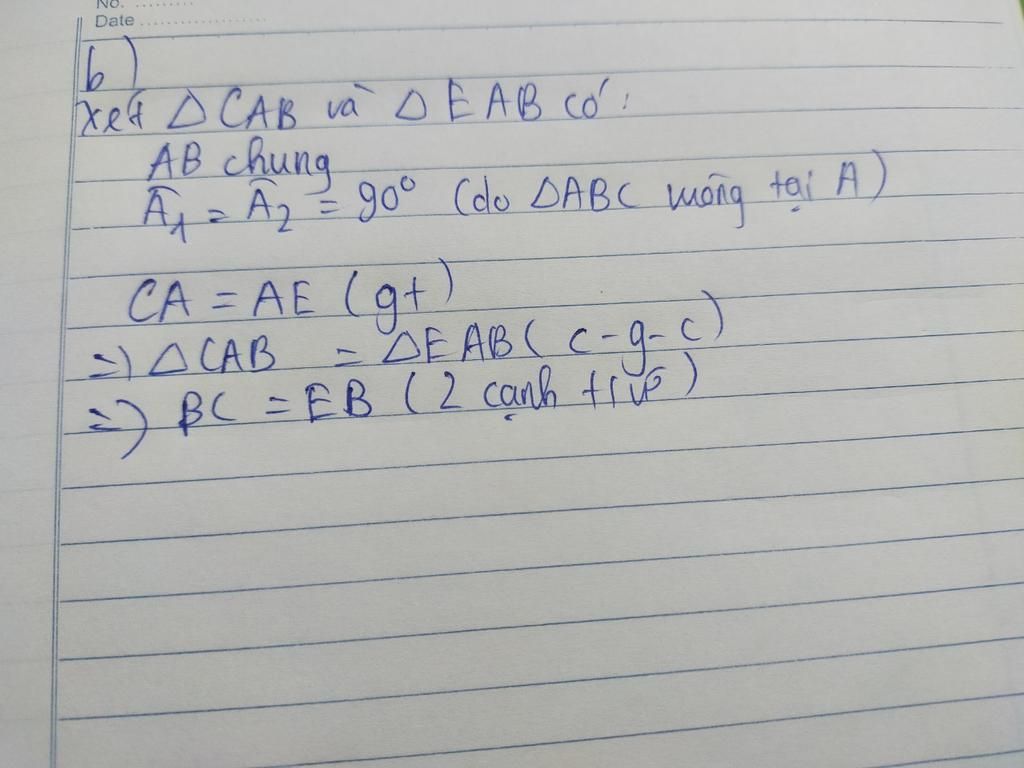 No. .........
Date ..................
b)
xét Δ CAB và Δ EAB có :
AB chung
Â₁ = Â₂ = 90° (do ΔABC vuông tại A)
CA = AE (gt)
=) Δ CAB = ΔEAB ( c-g-c)
=) BC = EB ( 2 cạnh tứ)